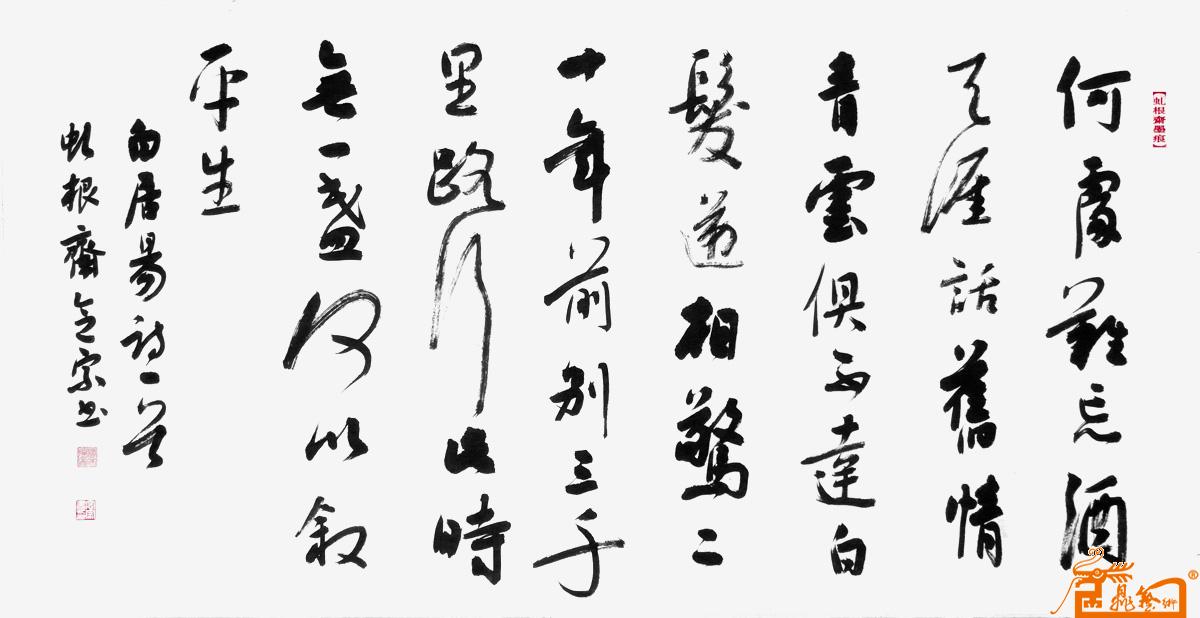 【虬根齋墨痕】
何處難忘酒
天涯話舊情
青雲俱不達白
髮遞相驚二
十年前別三千
里路行此時
無一盞何以敘
平生
白居易詩一首
虬根齋宗書
藝術